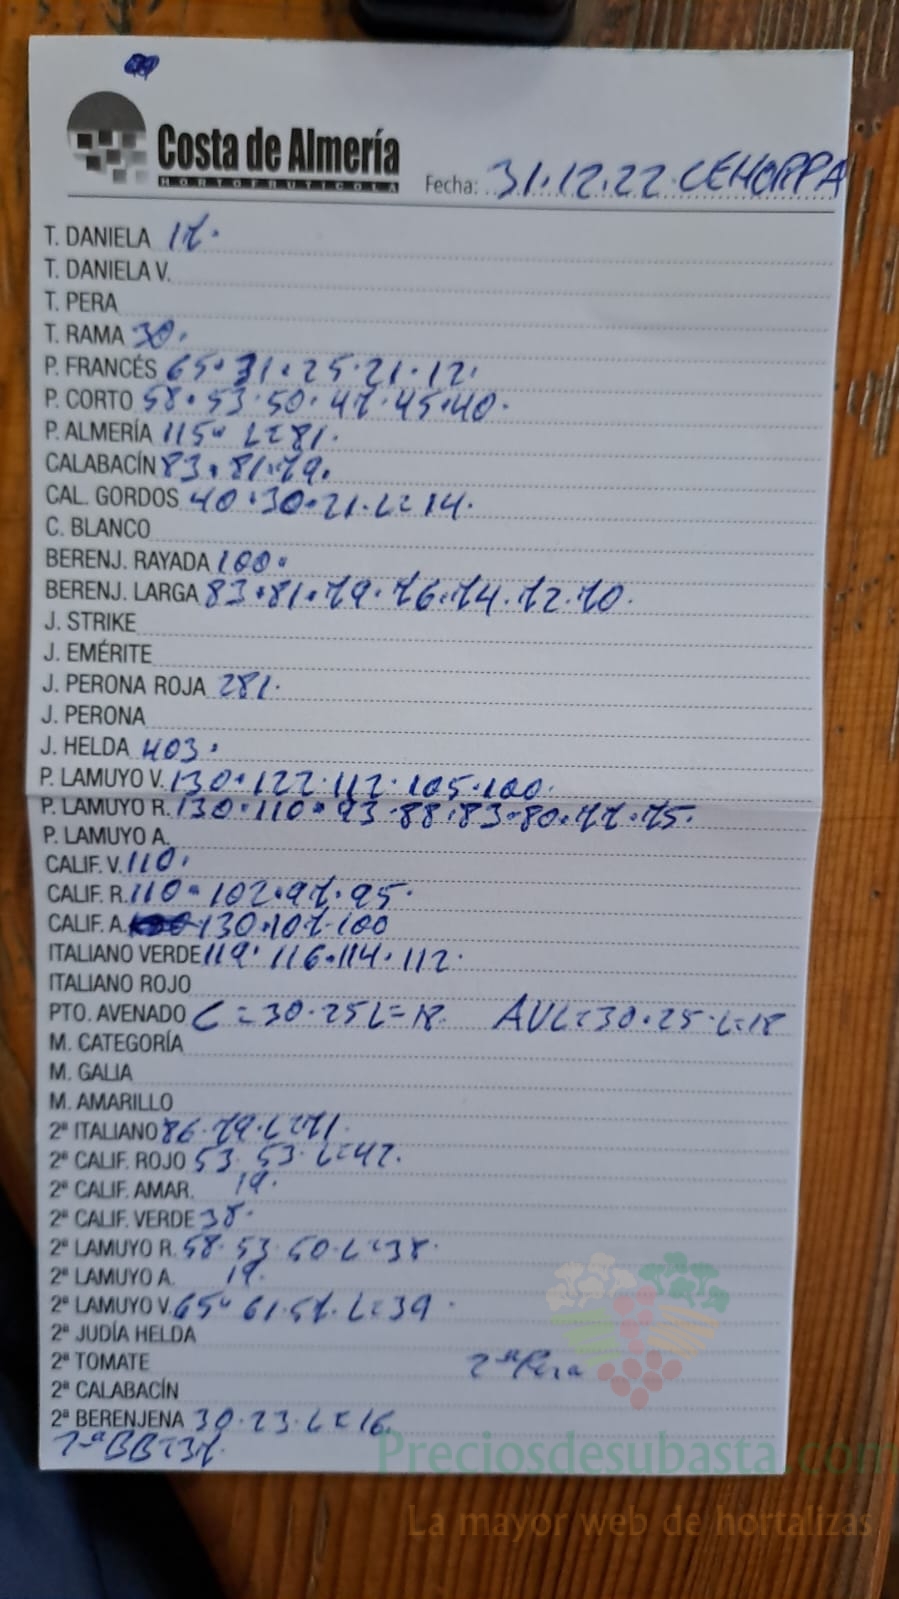 Costa de Almería
HORTOFRUTICOLA
Fecha: 31.12.22 CEHORPA
T. DANIELA 17.
T. DANIELA V.
T. PERA
T. RAMA 30.
P. FRANCÉS 65. 31. 25. 21. 12.
P. CORTO 58. 53. 50. 47. 45. 40.
P. ALMERÍA 115. L=81.
CALABACÍN 83. 81. 79.
CAL. GORDOS 40. 30. 21. L=14.
C. BLANCO
BERENJ. RAYADA 100.
BERENJ. LARGA 83. 81. 79. 76. 74. 72. 70.
J. STRIKE
J. EMÉRITE
J. PERONA ROJA 281.
J. PERONA
J. HELDA 403.
P. LAMUYO V. 130. 122. 112. 105. 100.
P. LAMUYO R. 130. 110. 93. 88. 83. 80. 77. 75.
P. LAMUYO A.
CALIF. V. 110.
CALIF. R. 110. 102. 97. 95.
CALIF. A. 130. 107. 100
ITALIANO VERDE 119. 116. 114. 112.
ITALIANO ROJO
PTO. AVENADO C=30. 25 L=18. AVL=30. 25. L=18
M. CATEGORÍA
M. GALIA
M. AMARILLO
2ª ITALIANO 86. 79. L=71.
2ª CALIF. ROJO 53. 53. L=47.
2ª CALIF. AMAR. 19.
2ª CALIF. VERDE 38.
2ª LAMUYO R. 58. 53. 50. L=38.
2ª LAMUYO A. 19.
2ª LAMUYO V. 65. 61. 57. L=39.
2ª JUDÍA HELDA
2ª TOMATE 2ª Pera
2ª CALABACÍN
2ª BERENJENA 30. 23. L=16.
2ª BB=37.
Preciosdesubasta.com
La mayor web de hortalizas